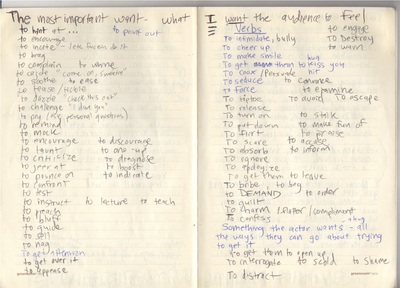 The most important want - what
to hint at ... to point out
to encourage
to incite - let's do it
to brag
to complain to whine
to cajole "come on, "
to soothe to ease
to tease / tickle
to dazzle "check this out"
to challenge "I dare you"
to pry (ask personal question)
to remind
to mock
to encourage to discourage
to taunt to one-up
to criticize to diagnose
to jeer at to boast
to pounce on to indicate
to confront
to test
to instruct to lecture to teach
to praise
to bluff
to guide
to sell
to nag
to get attention
to get over it
to appease
I want the audience to feel
Verbs to engage
To intimidate, bully TO DESTROY
To cheer up to warn
To make smile hug
To get them to kiss you
To coax / Persuade hit
To seduce to convince
to force to examine
To tiptoe To avoid To escape
To release
To turn on to strike
To put down to make fun of
To flirt to praise
To scare to accuse
To absorb to inform
To ignore
To apologize
To get them to leave
To bribe to beg
to DEMAND to order
to guilt
To charm / flatter / compliment
to confess a hug
Something the actor wants - all
the ways they can go about trying
to get it
to get them to open up
To interrogate to scold to shame
To distract